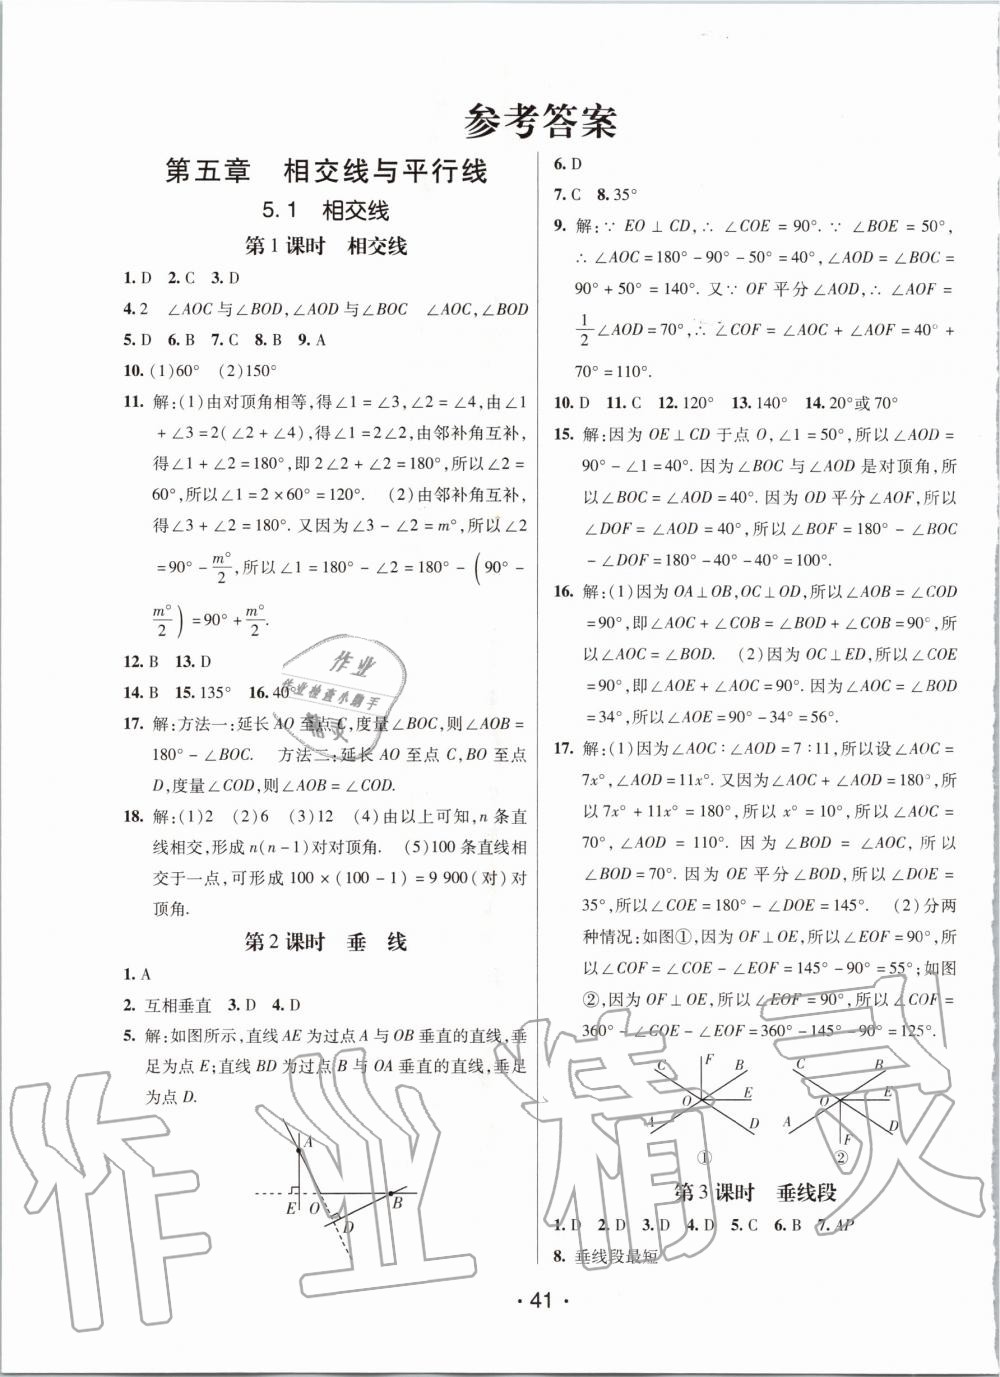 参考答案
第五章　相交线与平行线
5.1　相交线
第1课时　相交线
1. D　2. C　3. D
4. 2　∠AOC与∠BOD,∠AOD与∠BOC　∠AOC,∠BOD
5. D　6. B　7. C　8. B　9. A
10. (1)60°　(2)150°
11. 解:(1)由对顶角相等,得∠1=∠3,∠2=∠4,由∠1
+∠3=2(∠2+∠4),得∠1=2∠2,由邻补角互补,
得∠1+∠2=180°,即2∠2+∠2=180°,所以∠2=
60°,所以∠1=2×60°=120°.　(2)由邻补角互补,
得∠3+∠2=180°. 又因为∠3-∠2=m°,所以∠2
=90°-m°/2,所以∠1=180°-∠2=180°-(90°-
m°/2)=90°+m°/2.
12. B　13. D
14. B　15. 135°　16. 40°
17. 解:方法一:延长AO至点C,度量∠BOC,则∠AOB=
180°-∠BOC.　方法二:延长AO至点C,BO至点
D,度量∠COD,则∠AOB=∠COD.
18. 解:(1)2　(2)6　(3)12　(4)由以上可知,n条直
线相交,形成n(n-1)对对顶角.　(5)100条直线相
交于一点,可形成100×(100-1)=9 900(对)对
顶角.
第2课时　垂　线
1. A
2. 互相垂直　3. D　4. D
5. 解:如图所示,直线AE为过点A与OB垂直的直线,垂
足为点E;直线BD为过点B与OA垂直的直线,垂足
为点D.
A
E　O　D　B
6. D
7. C　8. 35°
9. 解:∵EO⊥CD,∴∠COE=90°. ∵∠BOE=50°,
∴∠AOC=180°-90°-50°=40°,∠AOD=∠BOC=
90°+50°=140°. 又∵OF平分∠AOD,∴∠AOF=
1/2∠AOD=70°,∴∠COF=∠AOC+∠AOF=40°+
70°=110°.
10. D　11. C　12. 120°　13. 140°　14. 20°或70°
15. 解:因为OE⊥CD于点O,∠1=50°,所以∠AOD=
90°-∠1=40°. 因为∠BOC与∠AOD是对顶角,所
以∠BOC=∠AOD=40°. 因为OD平分∠AOF,所以
∠DOF=∠AOD=40°,所以∠BOF=180°-∠BOC
-∠DOF=180°-40°-40°=100°.
16. 解:(1)因为OA⊥OB,OC⊥OD,所以∠AOB=∠COD
=90°,即∠AOC+∠COB=∠BOD+∠COB=90°,所
以∠AOC=∠BOD.　(2)因为OC⊥ED,所以∠COE
=90°,即∠AOE+∠AOC=90°. 因为∠AOC=∠BOD
=34°,所以∠AOE=90°-34°=56°.
17. 解:(1)因为∠AOC∶∠AOD=7∶11,所以设∠AOC=
7x°,∠AOD=11x°. 又因为∠AOC+∠AOD=180°,所
以7x°+11x°=180°,所以x°=10°,所以∠AOC=
70°,∠AOD=110°. 因为∠BOD=∠AOC,所以
∠BOD=70°. 因为OE平分∠BOD,所以∠DOE=
35°,所以∠COE=180°-∠DOE=145°.　(2)分两
种情况:如图①,因为OF⊥OE,所以∠EOF=90°,所
以∠COF=∠COE-∠EOF=145°-90°=55°;如图
②,因为OF⊥OE,所以∠EOF=90°,所以∠COF=
360°-∠COE-∠EOF=360°-145°-90°=125°.
C　F　B　E　O　A　D　①
C　B　O　E　A　F　D　②
第3课时　垂线段
1. D　2. D　3. D　4. D　5. C　6. B　7. AP
8. 垂线段最短
· 41 ·
作业
作业检查小助手
精灵
作业精灵